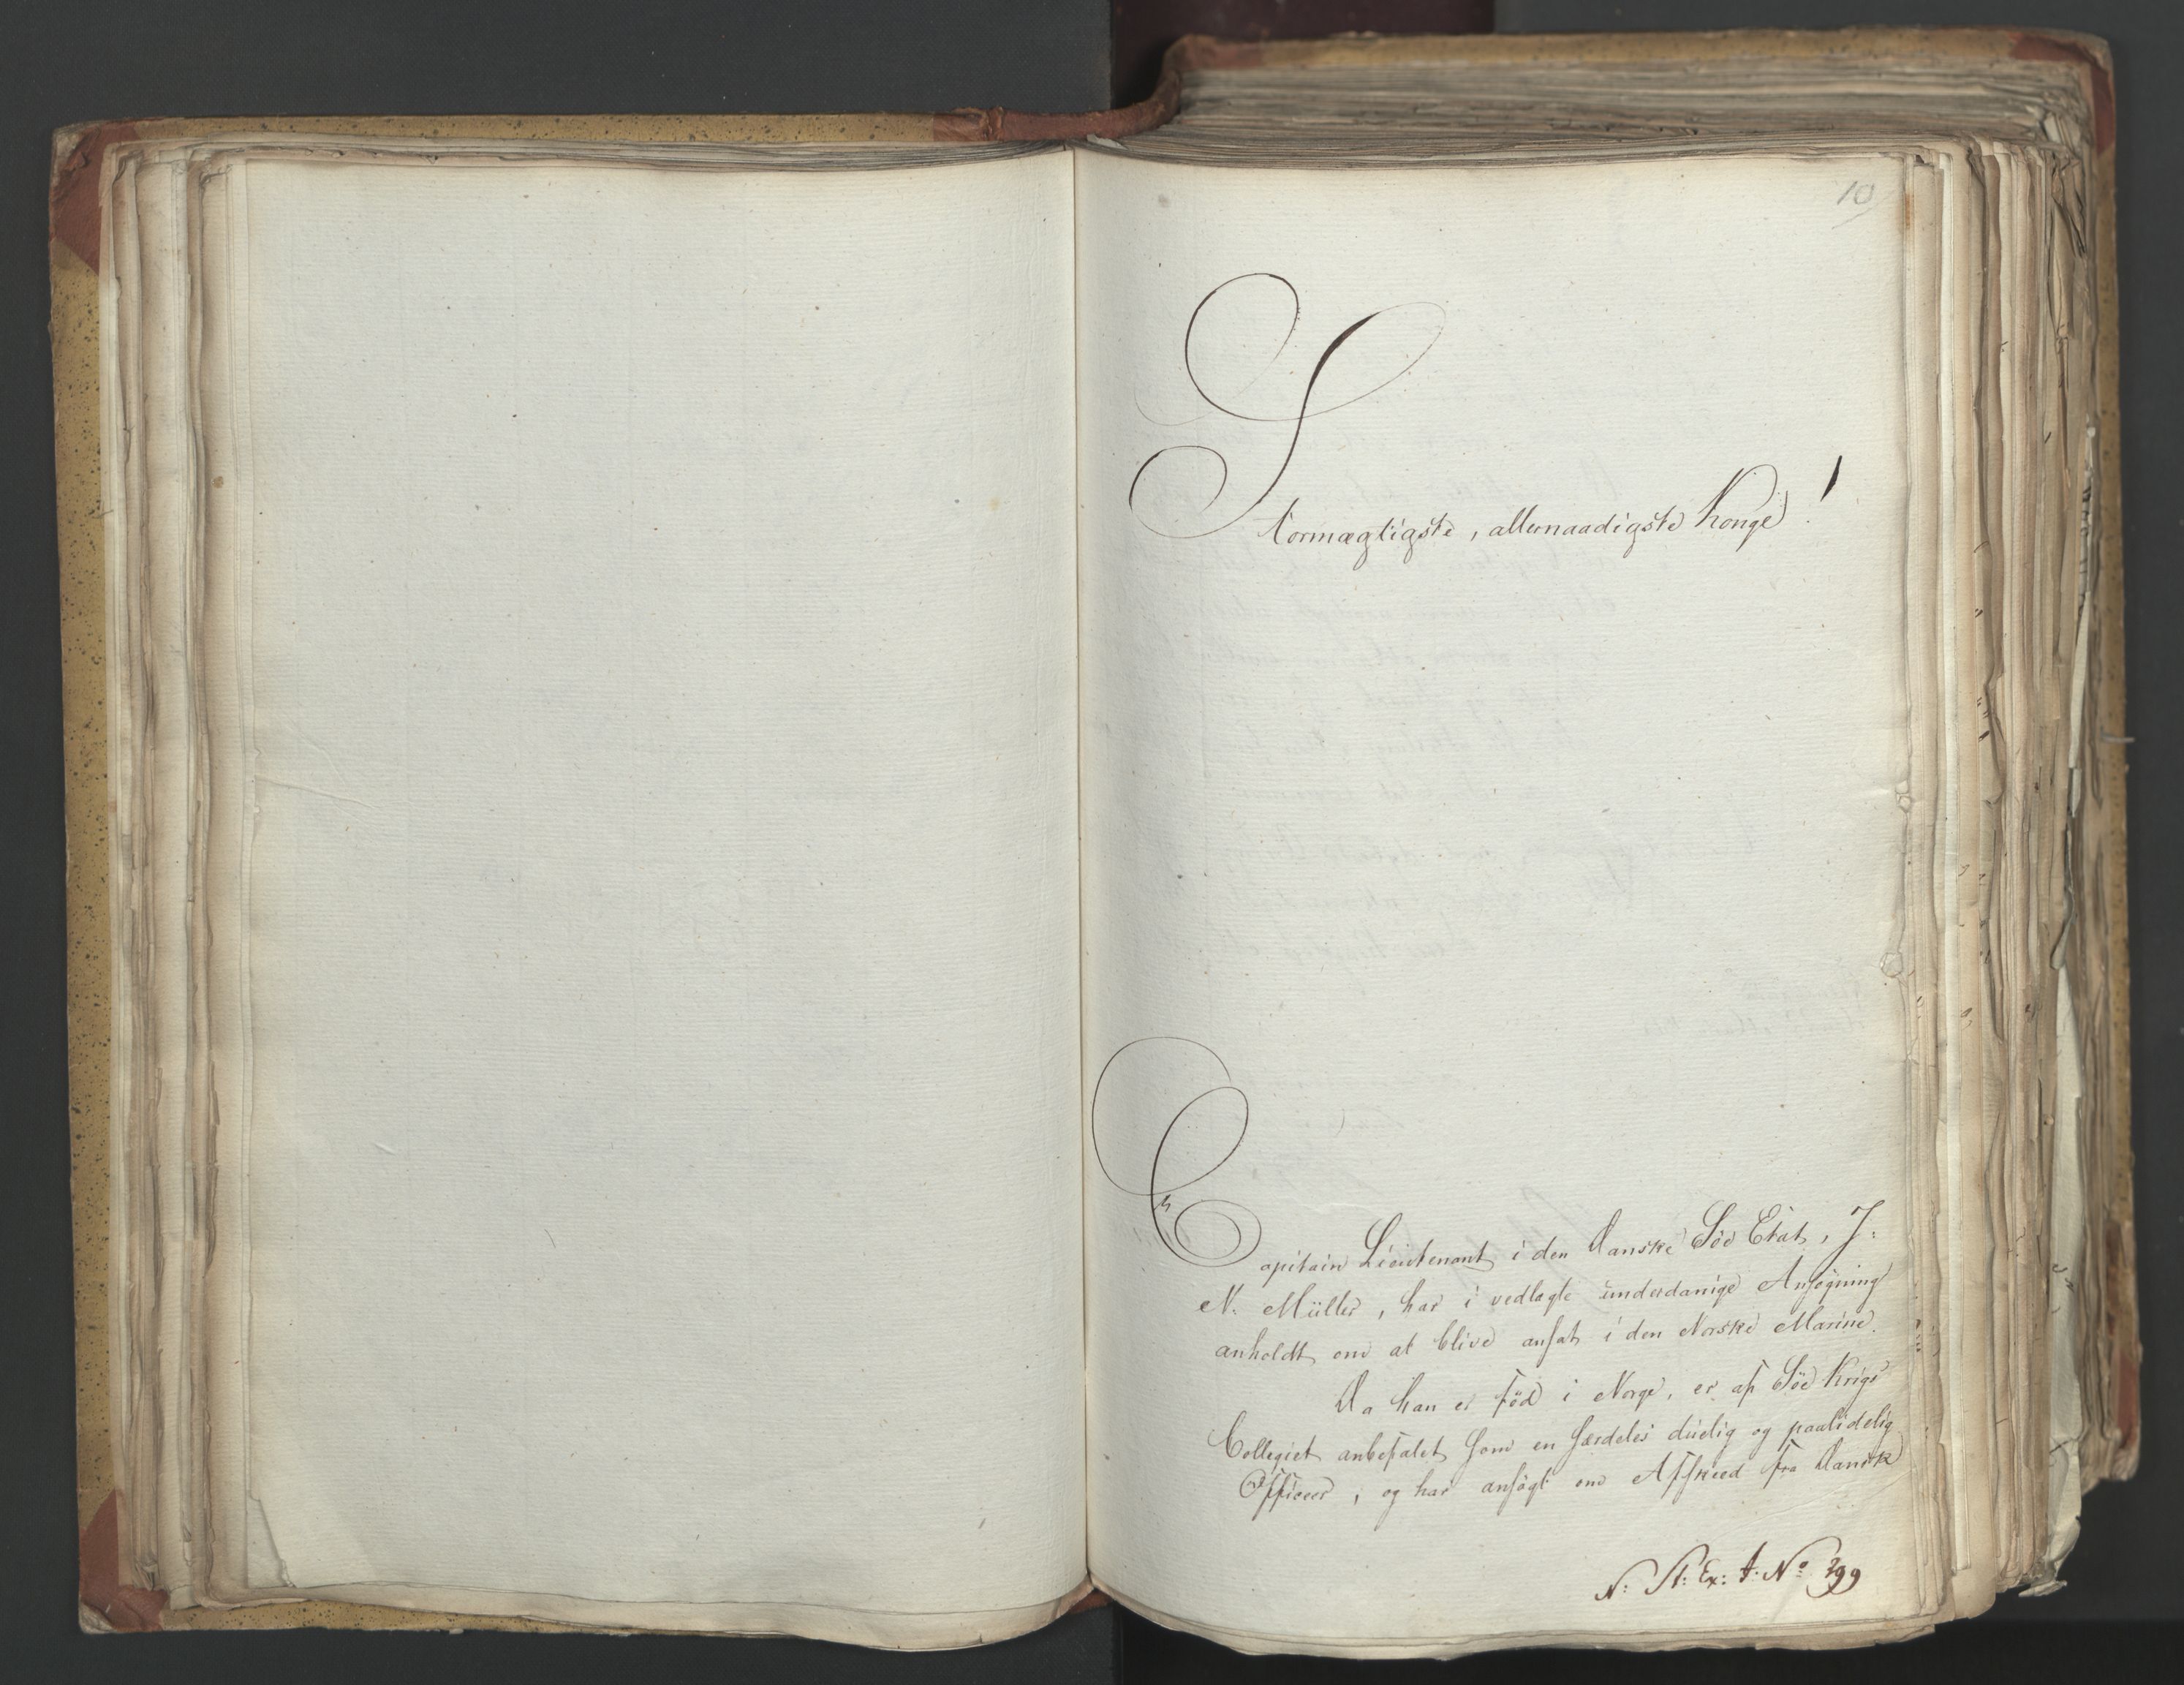 10
Stormægtigste, allernaadigste Konge!
Capitain Lieutenant i den Danske Söe Etat, J:
N. Müller, har i vedlagte underdanige Ansøgning
anholdt om at blive ansat i den Norske Marine.
Da han er född i Norge, er af Söe Krigs
Collegiet anbefalet som en særdeles duelig og paalidelig
Officeer, og har ansøgt om Afskeed fra Dansk
N: St: Ex: A: No 299